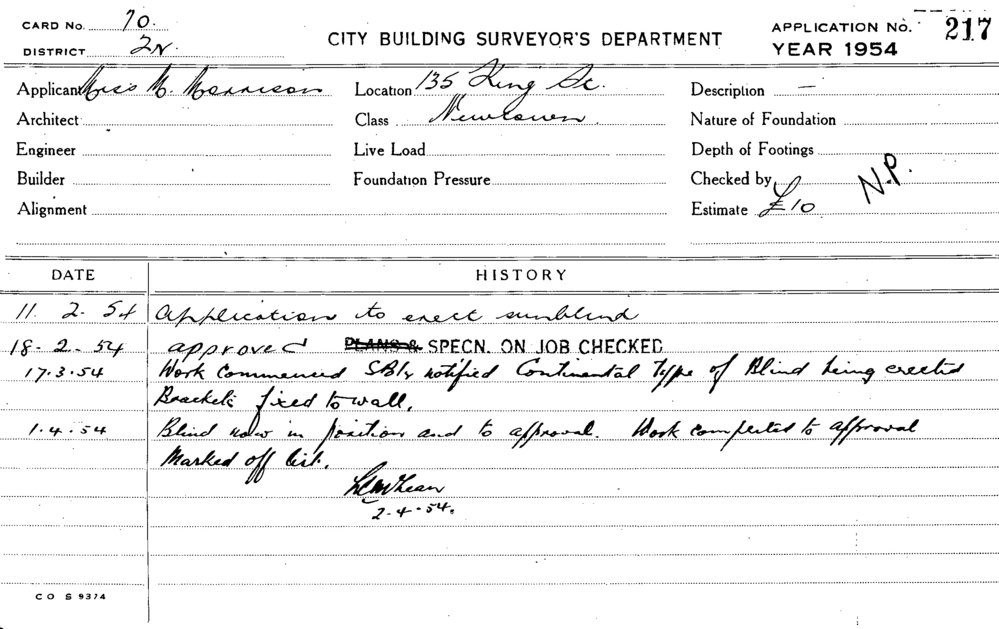 CARD No. 70.
DISTRICT 2N.
CITY BUILDING SURVEYOR'S DEPARTMENT
APPLICATION No. 217
YEAR 1954
Applicant Miss M. Morrison
Location 135 King St.
Description —
Architect
Class Newtown.
Nature of Foundation
Engineer
Live Load
Depth of Footings
Builder
Foundation Pressure
Checked by N.P.
Alignment
Estimate £10
DATE HISTORY
11. 2. 54 Application to erect sunblind
18. 2. 54 approved PLANS & SPECN. ON JOB CHECKED
17.3.54 Work commenced notified Continental Type of Blind being erected
Brackets fixed to wall.
1.4.54 Blind now in position and to approval. Work completed to approval
Marked off list.
2.4.54.
CO S 9374